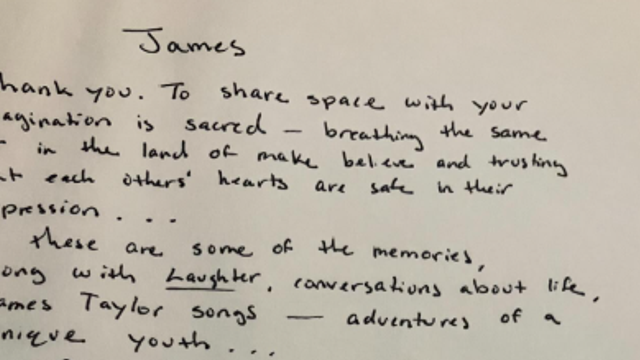 James
hank you. To share space with your
agination is sacred — breathing the same
in the land of make believe and trusting
t each others' hearts are safe in their
pression . . .
these are some of the memories,
ong with Laughter, conversations about life,
ames Taylor songs — adventures of a
nique youth . . .